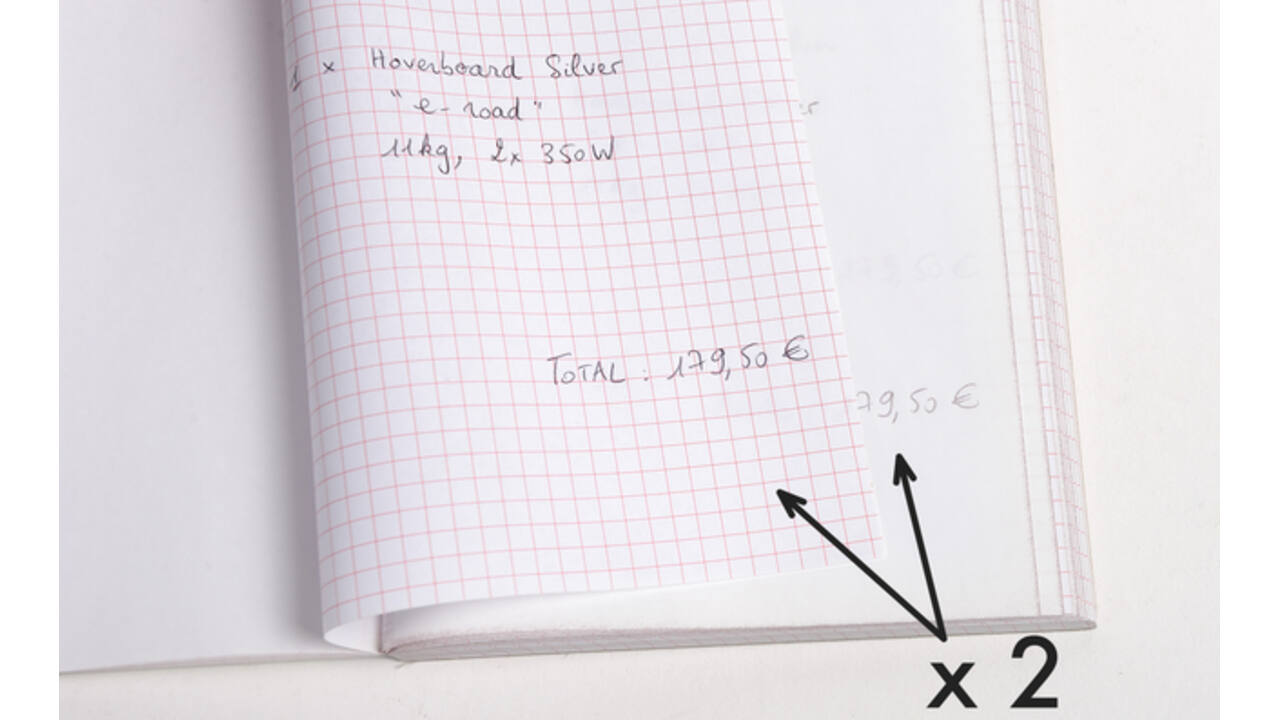 1 x Hoverboard Silver
"e-road"
11kg, 2x 350W
TOTAL : 179,50 €
79,50 €
x 2